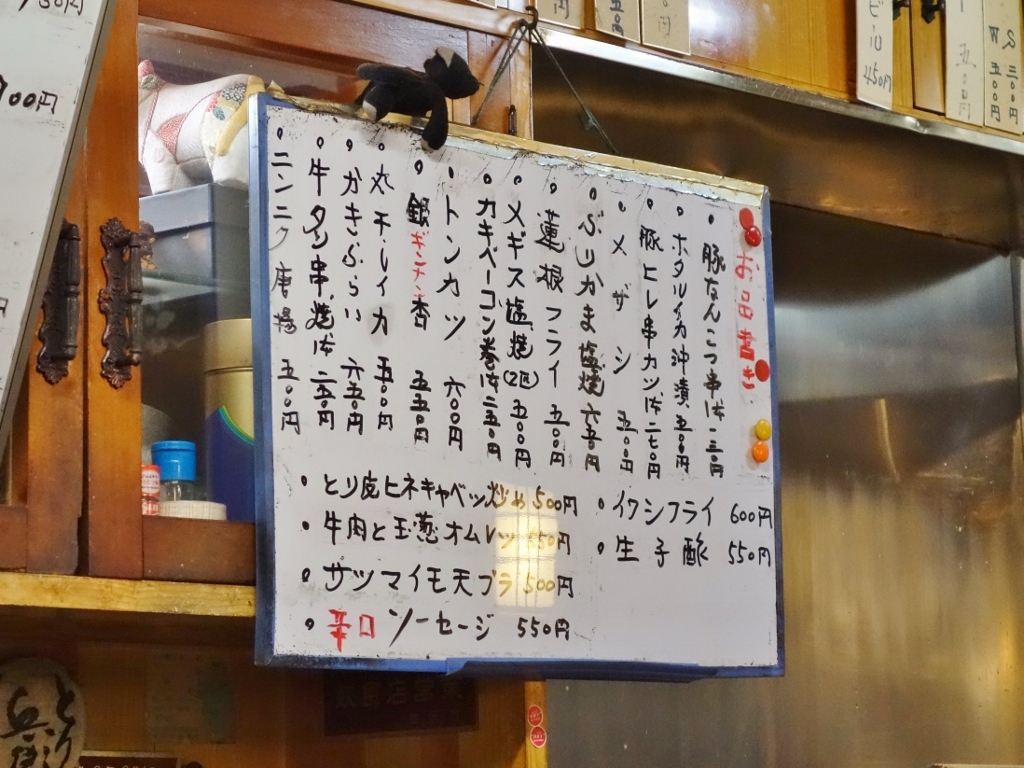 お品書き
・豚なんこつ串1本 二三〇円
・ホタルイカ沖漬 五〇〇円
・豚ヒレ串カツ1本 二七〇円
・メザシ 五〇〇円
・ぶりかま塩焼 六五〇円
・蓮根フライ 五〇〇円
・メギス塩焼(2匹) 五〇〇円
・カキベーコン巻1本 二五〇円
・トンカツ 六〇〇円
・銀杏 ギンナン 五五〇円
・丸干しイカ 五〇〇円
・かきふらい 六五〇円
・牛タン串焼1本 二五〇円
・ニンニク唐揚 五〇〇円
・とり皮ヒネキャベツ炒め 500円
・牛肉と玉葱オムレツ 550円
・サツマイモ天プラ 500円
・辛口ソーセージ 550円
・イワシフライ 600円
・生子酢 550円
900円
ビール 450円
五〇〇円
W 五〇〇円
S 三〇〇円